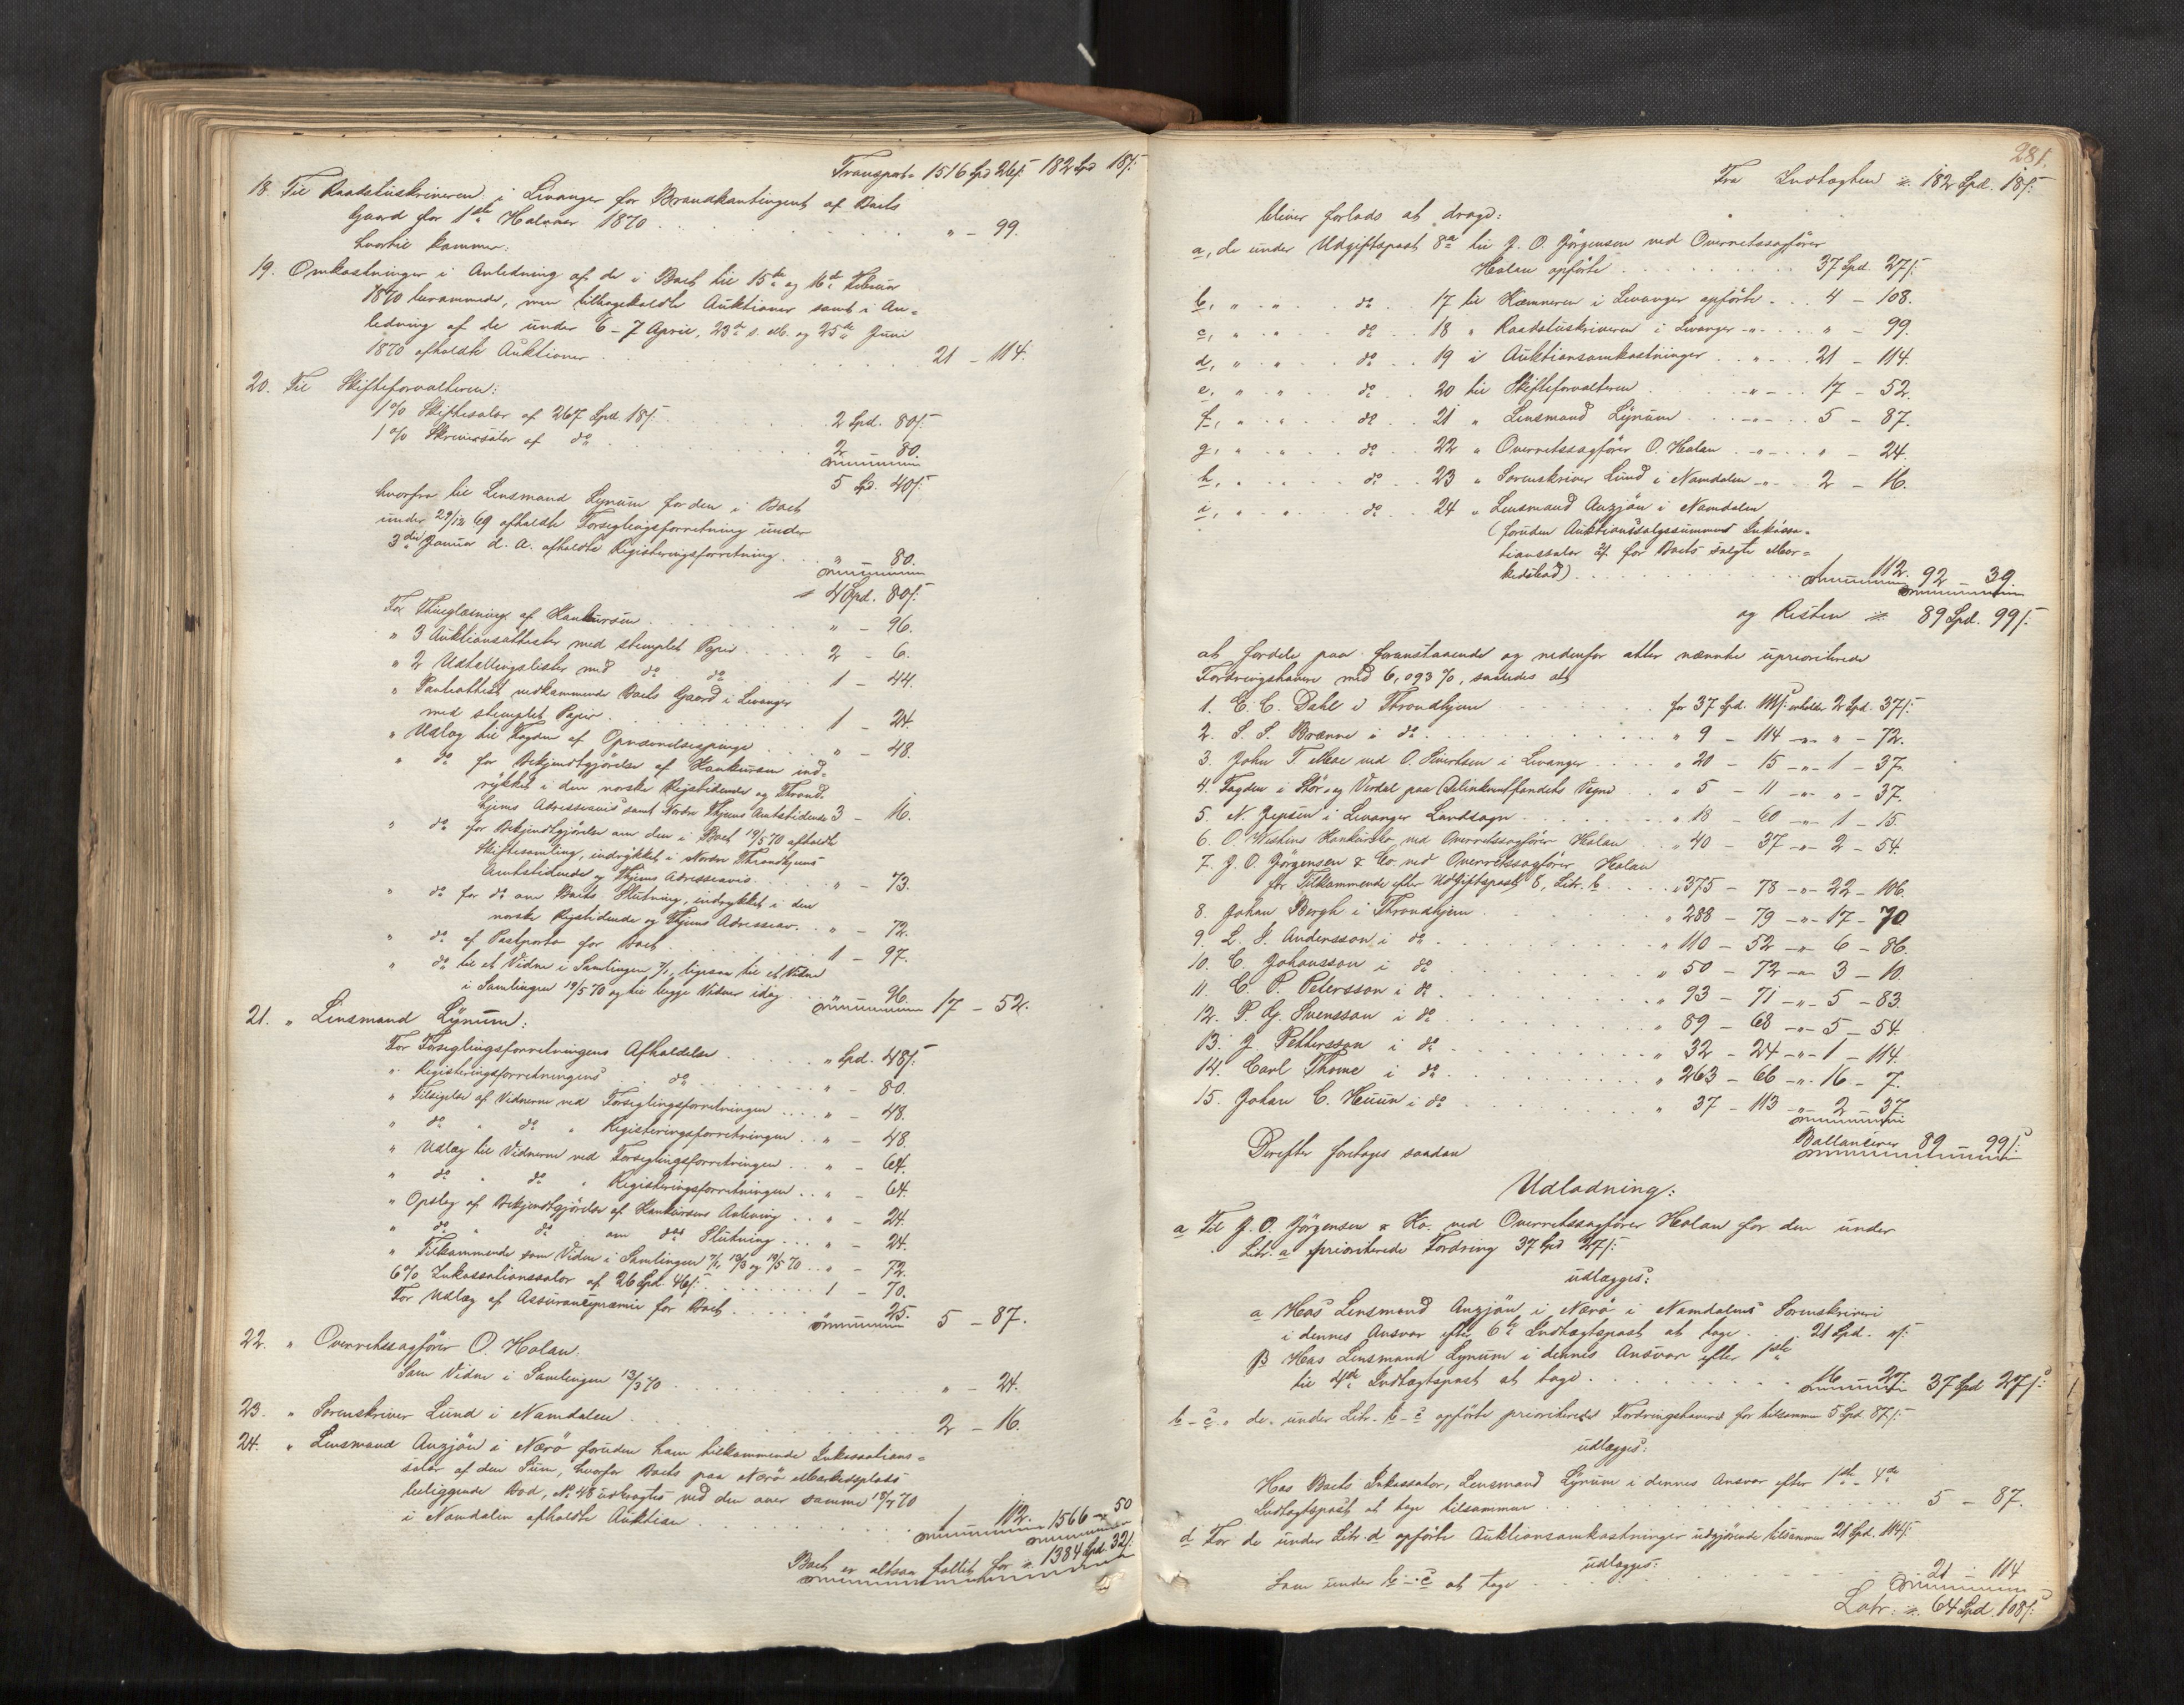 Transport 1516 Spd 26ß 182 Spd 18ß:
18. Til Raadstuskriveren i Levanger for Brandkontingent af Boets
Gaard for 1ste Halvaar 1870 . . . " - 99.
hvortil kommer:
19. Omkostninger i Anledning af de i Boet til 15de og 16de Februar
1870 berammede, men tilbagekaldte Auktioner samt i An-
ledning af de under 6 - 7 April, 23de s. M. og 25de Juni
1870 afholdte Auktioner . . . 21 - 114.
20. Til Skifteforvalteren:
1% Skiftesalær af 267 Spd. 18ß . . . 2 Spd. 80ß
1% Skriversalær af do . . . 2 80.
5 Spd. 40ß
hvorfra til Lensmand Lynum for den i Boet
under 29/12 69 afholdte Forseglingsforretning under
3die Januar d. A. afholdte Registeringsforretning . . . " 80.
4 Spd. 80ß
For Thinglæsning af Konkursen . . . " - 96.
" 3 Auktionsattester med stemplet Papir . . . 2 - 6.
" 2 Udtællingslister med do do . . . 1 - 44.
" Panteattest vedkommende Boets Gaard i Levanger
med stemplet Papir . . . 1 - 24.
" Udlæg til Fogden af Opnævnelsespenge . . . " - 48.
" do for Bekjendtgjørelse af Konkursen ind-
rykket i den norske Rigstidende og Thrond-
hjems Adresseavis samt Nordre Thjems Amtstidende 3 - 16.
" do for Bekjendtgjørelse om den i Boet 19/5 70 afholdte
Skiftesamling, indrykket i Nordre Throndhjems
Amtstidende og Thjems Adresseavis . . . " - 73.
" do for do om Boets Slutning, indrykket i den
norske Rigstidende og Thjems Adresseav. . . " - 72.
" do af Postporto for Boet . . . 1 - 97.
" do til et Vidne i Samlingen 7/1, ligesaa til et Vidne
i Samlingen 19/5 70 og til begge Vidner idag . . . " 96. 17 - 52.
21. " Lensmand Lynum:
For Forseglingsforretningens Afholdelse . . . " Spd. 48ß
" Registeringsforretningens do . . . " - 80.
" Tilsigelse af Vidnerne ved Forseglingsforretningen . . . " - 48.
" do " do " Registeringsforretningen . . " - 48.
" Udlæg til Vidnerne ved Forseglingsforretningen . . " - 64.
" do " do " Registeringsforretningen . . " - 64.
" Opslag af Bekjendtgjørelse af Konkursens Aabning . . " - 24.
" do " do om dens Slutning . . . " - 24.
" Tilkommende som Vidne i Samlingen 7/1, 13/3 og 19/5 70 . . " - 72.
6% Inkassationssalær af 26 Spd. 46ß . . . 1 - 70.
For Udlæg af Assurancepræmie for Boet . . . " 25. 5 - 87.
22. " Overretssagfører O. Holan:
Som Vidne i Samlingen 13/3 70 . . . " - 24.
23. " Sorenskriver Lund i Namdalen . . . 2 - 16.
24. " Lensmand Anzjøn i Nærø foruden ham tilkommende Inkassations-
salær af den Sum, hvorfor Boets paa Nærø Markedsplads
beliggende Bod, No 48 udbragtes ved den over samme 18/7 70
i Namdalen afholdte Auktion . . . 1 112. 1566 - 50
Boet er altsaa fallit for 1384 Spd. 32ß.
281.
Fra Indtægten 182 Spd. 18ß:
bliver forlods at drage:
a, de under Udgiftspost 8a til J. O. Jørgensen ved Overretssagfører
Holan opførte . . . 37 Spd. 27ß:
b, " " do . . 17 til Kæmneren i Levanger opførte . . . 4 - 108.
c, " " do . . 18 " Raadstuskriveren i Levanger - " - . . " - 99.
d, " " do . . 19 i Auktionsomkostninger . . " . . 21 - 114.
e, " " do . . 20 til Skifteforvalteren . . - " - . . 17 - 52.
f, " " do . . 21 " Lensmand Lynum . . - " - . . 5 - 87.
g, " " do . . 22 " Overretssagfører O. Holan . . - " - . . " - 24.
h, " " do . . 23 " Sorenskriver Lund i Namdalen - " - . . 2 - 16.
i, " " do . . 24 " Lensmand Anzjøn i Namdalen
(foruden Auktionssalgssummens Inkassa-
tionssalær af for Boets solgte Mar-
kedsbod) . . . 1 112. 92 - 39.
og Resten 89 Spd. 99ß:
at fordele paa foranstaaende og nedenfor atter nævnte uprioriterede
Fordringshavere med 6,093 %, saaledes at
1. E. C. Dahl i Throndhjem . . . for 37 Spd. 111ß: erholder 2 Spd. 37ß:
2. S. S. Brænne i do . . . " 9 - 114 - " - " - 72.
3. John T. Moe ved O. Sivertsen i Levanger . . . " 20 - 15 - " - 1 - 37.
4. Fogden i Stør- og Værdal paa Delinkventfondets Vegne . . " 5 - 11 - " - " - 37.
5. N. Jepsen i Levanger Landsogn . . . " 18 - 60 - " - 1 - 15.
6. O. Wistins Konkursbo ved Overretssagfører Holan . . " 40 - 37 - " - 2 - 54.
7. J. O. Jørgensen & Co. ved Overretssagfører Holan
for Tilkommende efter Udgiftspost 8, Litr. b . . . " 375 - 78 - " - 22 - 106
8. Johan Bergh i Throndhjem . . . " 288 - 79 - " - 17 - 70
9. L. J. Andersson i do . . . " 110 - 52 - " - 6 - 86.
10. C. Johansson i do . . . " 50 - 72 - " - 3 - 10.
11. C. P. Petersson i do . . . " 93 - 71 - " - 5 - 83.
12. P. G. Svensson i do . . . " 89 - 68 - " - 5 - 54.
13. J. Pettersson i do . . . " 32 - 24 - " - 1 - 114.
14. Carl Thome i do . . . " 263 - 66 - " - 16 - 7.
15. Johan C. Huun i do . . . " 37 - 113 - " - 2 - 37.
Ballancerer 89 - 99ß:
Derefter foretages saadan
Udlodning:
a Til J. O. Jørgensen & Ko. ved Overretssagfører Holan for den under
Litr. a prioriterede Fordring 37 Spd 27ß:
udlægges:
a Hos Lensmand Anzjøn i Nærø i Namdalens Sorenskriveri
i dennes Ansvar efter 6te Indtægtspost at tage . . . 21 Spd. "ß:
β Hos Lensmand Lynum i dennes Ansvar efter 1ste
til 4de Indtægtspost at tage . . . 16 27. 37 Spd 27ß:
b - c " de under Litr. b - c opførte prioriterede Fordringshavere for tilsammen 5 Spd. 87ß:
udlægges:
Hos Boets Inkassator, Lensmand Lynum i dennes Ansvar efter 1ste - 4de
Indtægtspost at tage tilsammen . . . 5 - 87.
d For de under Litr. d opførte Auktionsomkostninger udgjørende tilsammen 21 Spd. 114ß:
udlægges:
Som under b - c at tage . . . 21 - 114
Latr. 64 Spd. 108ß: